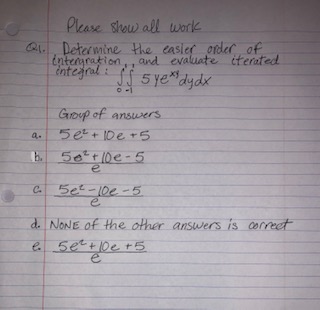 Please show all work
Q1. Determine the easier order of
integration, and evaluate iterated
integral: ∫∫ 5ye^xy dydx
0 -1
Group of answers
a. 5e² + 10e +5
b. 5e² + 10e - 5
e
c. 5e² - 10e - 5
e
d. NONE of the other answers is correct
e. 5e² + 10e + 5
e